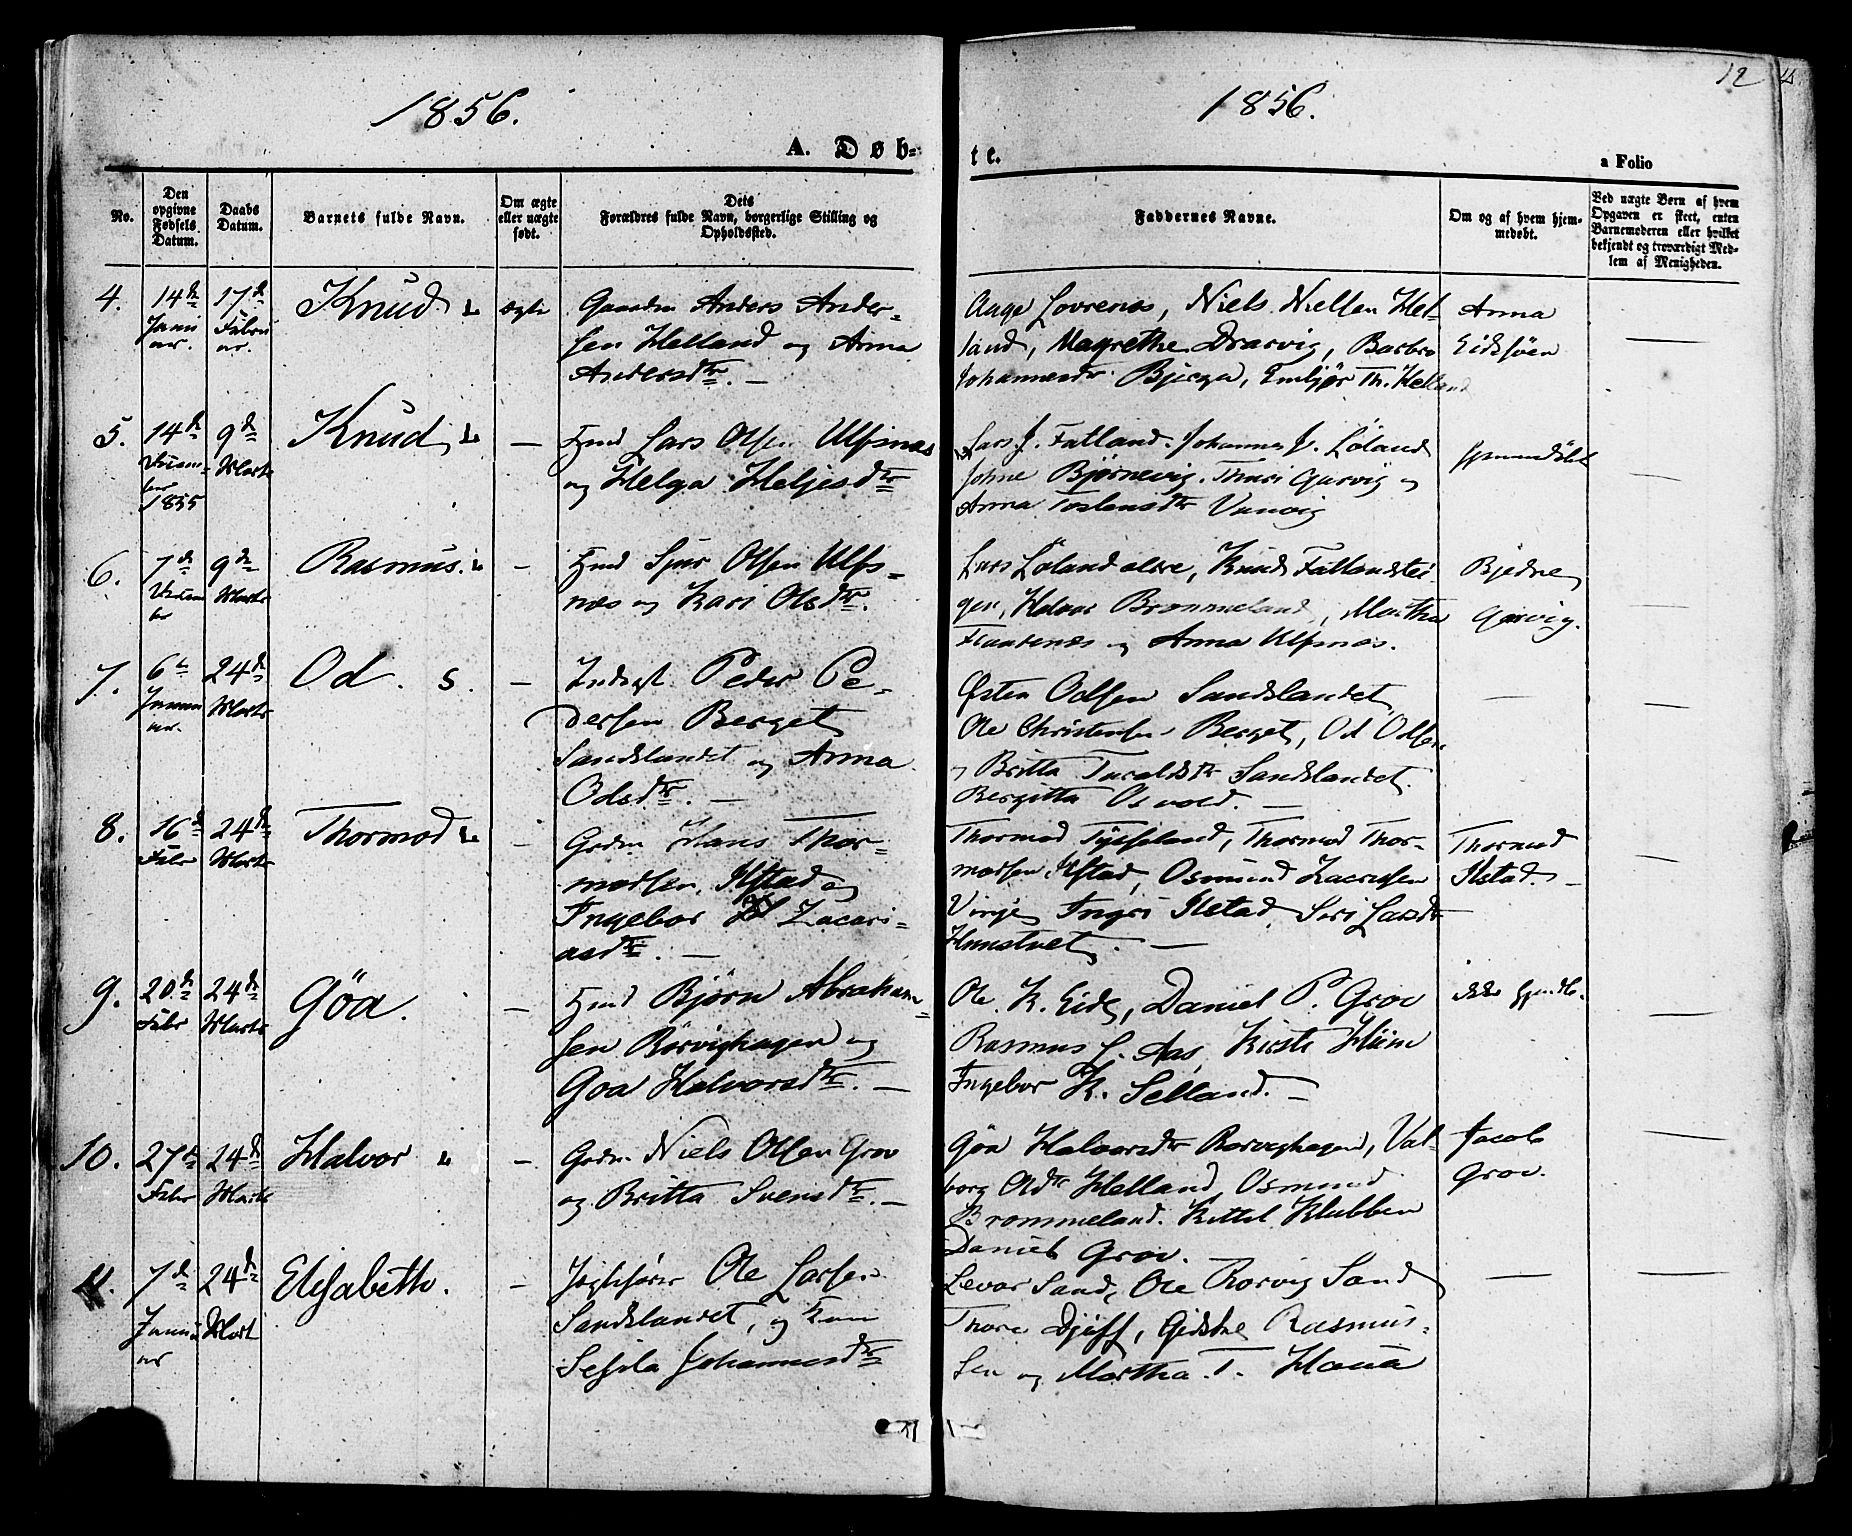 1856.
1856.
12
A. Døb-
te.
a Folio
No.
Den opgivne Fødsels Datum.
Daabs Datum.
Barnets fulde Navn.
Om ægte eller uægte født.
Dets Forældres fulde Navn, borgerlige Stilling og Opholdssted.
Faddernes Navne.
Om og af hvem hjemmedøbt.
Ved uægte Børn af hvem Opgaven er skeet, enten Barnemoderen eller hvilket bekjendt og troværdigt Medlem af Menigheden.
4. 14de Janu ar. 17de Febru ar. Knud ægte
Gaardm Anders Ander-
sen Helland og Anna
Andersdtr. —
Aage Lovrenæs, Niels Nielsen Hel-
land, Magrethe Drarvig, Barbro
Johannesdtr Bjerga, Th. Helland
Anna
Eidssøen
5. 14de 1855 9de Marts Knud —
Hmd Lars Olsen Ulfsnæs
og Helga Heljesdtr
Lars J. Fatland. Johannes J. Løland
Johne Bjørnevig. Thuri Garvig og
Anna Vanvig
6. 7de 9de Marts Rasmus. —
Hmd Sjur Olsen Ulfs-
næs og Kari Olsdtr.
Lars Løland Knud Fatlandstei-
gen, Halvor Brommeland, Martha
og Anna Ulfsnæs.
Garvig.
7. 6te Januar. 24de Marts Od. S. —
Inderst Peder Pe-
dersen Berget
Sandslandet og Anna
Odsdtr. —
Østen Odsen Sandslandet
Ole Christensen Berget, Od Odsen
og Britta Sandslandet
Bergitta Osvold. —
8. 16de Febr 24de Marts Thormod
Grdm Hans Thor-
modsen Ilstad og
Ingebor Zacari-
asdtr. —
Thormod Tysseland, Thormod Thor-
modsen Ilstad, Osmund
Vinje Ingri Ilstad Siri Larsdtr
Hunstvet. —
Thormod
Ilstad. —
9. 20de Febr 24de Marts Göa. —
Hmd Bjørn Abraham-
sen Rørvighagen og
Goa Halvorsdtr. —
Ole K. Eide, Daniel P. Grov
Rasmus L. Aas, Kirsti
Ingebor K. Selland. —
ikke
10. 27de Febr 24de Marts Halvor —
Grdm Niels Olsen Grov
og Britta Svensdtr. —
Göa Halvorsdtr Rørvighagen, Val-
borg Olsdtr Helland, Osmund
Brommeland. Kittel Klubben
Daniel Grov.
Jacob
Grov.
11. 7de Janu ar 24de Mart Elisabeth. —
Ole Larsen
Sandslandet, og Kone
Sesila Johannesdtr
Levor Sand, Ole Rørvig Sand
Thore Djuff, Gidske Rasmus-
sen og Martha T.